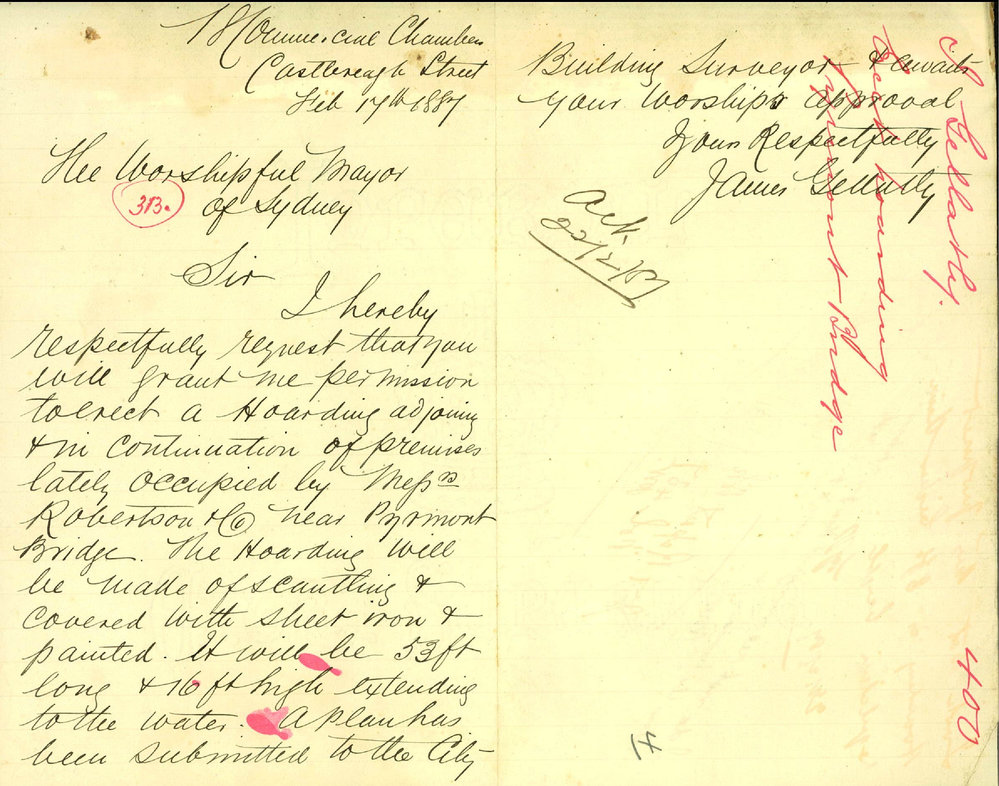 18 Commercial Chambers
Castlereagh Street
Feb 17th 1887
The Worshipful Mayor
of Sydney
3B.
Sir
I hereby
respectfully request that you
will grant me permission
to erect a Hoarding adjoining
& in continuation of premises
lately occupied by Messrs
Robertson & Co near Pyrmont
Bridge. The Hoarding will
be made of scantling &
covered with sheet iron &
painted. It will be 53 ft
long & 16 ft high extending
to the water. A Plan has
been submitted to the City
Building Surveyor & awaits
your Worships approval
Yours Respectfully
James Gellatly
Ack
22/2/87
J Gellatly.
hoarding
Pyrmont Bridge
400
4